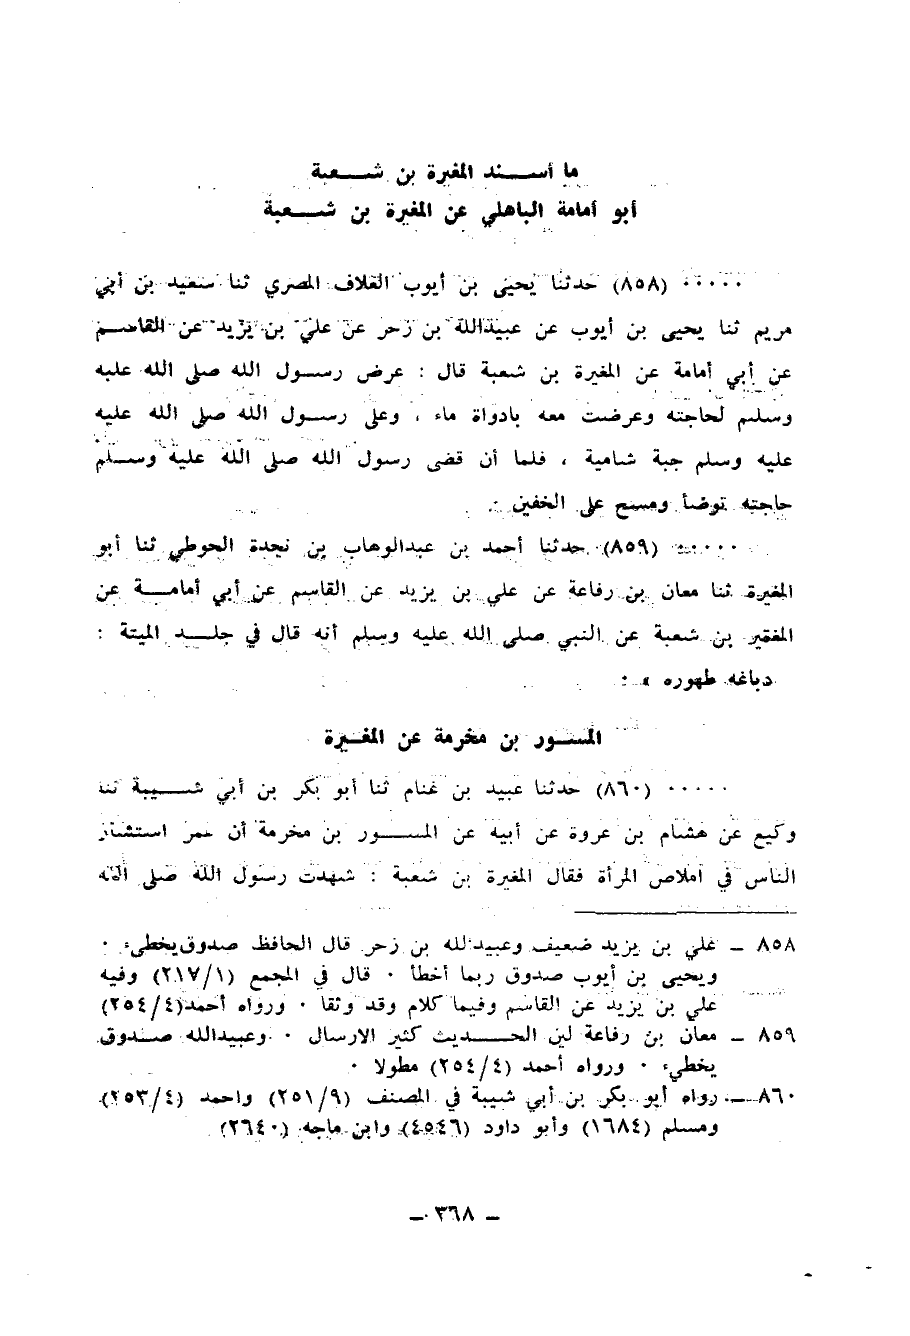 ما أسند المغيرة بن شعبة
أبو أمامة الباهلي عن المغيرة بن شعبة
٠٠٠٠٠ (٨٥٨) حدثنا يحيى بن أيوب العلاف المصري ثنا سعيد بن أبي
مريم ثنا يحيى بن أيوب عن عبيدالله بن زحر عن علي بن يزيد عن القاسم
عن أبي أمامة عن المغيرة بن شعبة قال : عرض رسول الله صلى الله عليه
وسلم لحاجته وعرضت معه بادواة ماء ، وعلى رسول الله صلى الله عليه
عليه وسلم جبة شامية ، فلما أن قضى رسول الله صلى الله عليه وسلم
حاجته توضأ ومسح على الخفين .
٠٠٠٠٠ (٨٥٩) حدثنا أحمد بن عبدالوهاب بن نجدة الحوطي ثنا أبو
المغيرة ثنا معان بن رفاعة عن علي بن يزيد عن القاسم عن أبي أمامة عن
المغير بن شعبة عن النبي صلى الله عليه وسلم أنه قال في جلد الميتة :
دباغه طهوره » :
المسور بن مخرمة عن المغيرة
٠٠٠٠٠ (٨٦٠) حدثنا عبيد بن غنام ثنا أبو بكر بن أبي شيبة ثنا
وكيع عن هشام بن عروة عن أبيه عن المسور بن مخرمة أن عمر استشار
الناس في أملاص المرأة فقال المغيرة بن شعبة : شهدت رسول الله صلى الله
٨٥٨ – علي بن يزيد ضعيف وعبيدالله بن زحر قال الحافظ صدوق يخطىء ٠
ويحيى بن أيوب صدوق ربما أخطأ ٠ قال في المجمع (٢١٧/١) وفيه
علي بن يزيد عن القاسم وفيما كلام وقد وثقا ٠ ورواه أحمد (٢٥٤/٤)
٨٥٩ – معان بن رفاعة لين الحديث كثير الارسال ٠ وعبيدالله صدوق
يخطىء ٠ ورواه أحمد (٢٥٤/٤) مطولا ٠
٨٦٠ – رواه أبو بكر بن أبي شيبة في المصنف (٢٥١/٩) واحمد (٢٥٣/٤)
ومسلم (١٦٨٤) وأبو داود (٤٥٤٦) وابن ماجه (٢٦٤٠)
– ٣٦٨ –